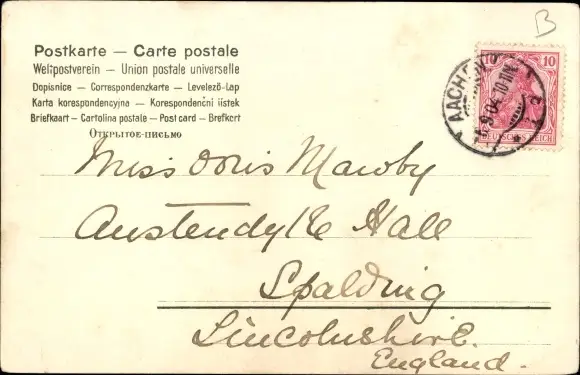 B
Postkarte — Carte postale
Weltpostverein — Union postale universelle
Dopisnice — Correspondenzkarte — Levelező-Lap
Karta korespondencyjna — Korespondenční lístek
Briefkaart — Cartolina postale — Post card — Brefkort
Открытое-письмо
10
DEUTSCHES REICH
AACHEN
9.04.10-11
Miss Doris Mawby
Hall
Spalding
Lincolnshire.
England.